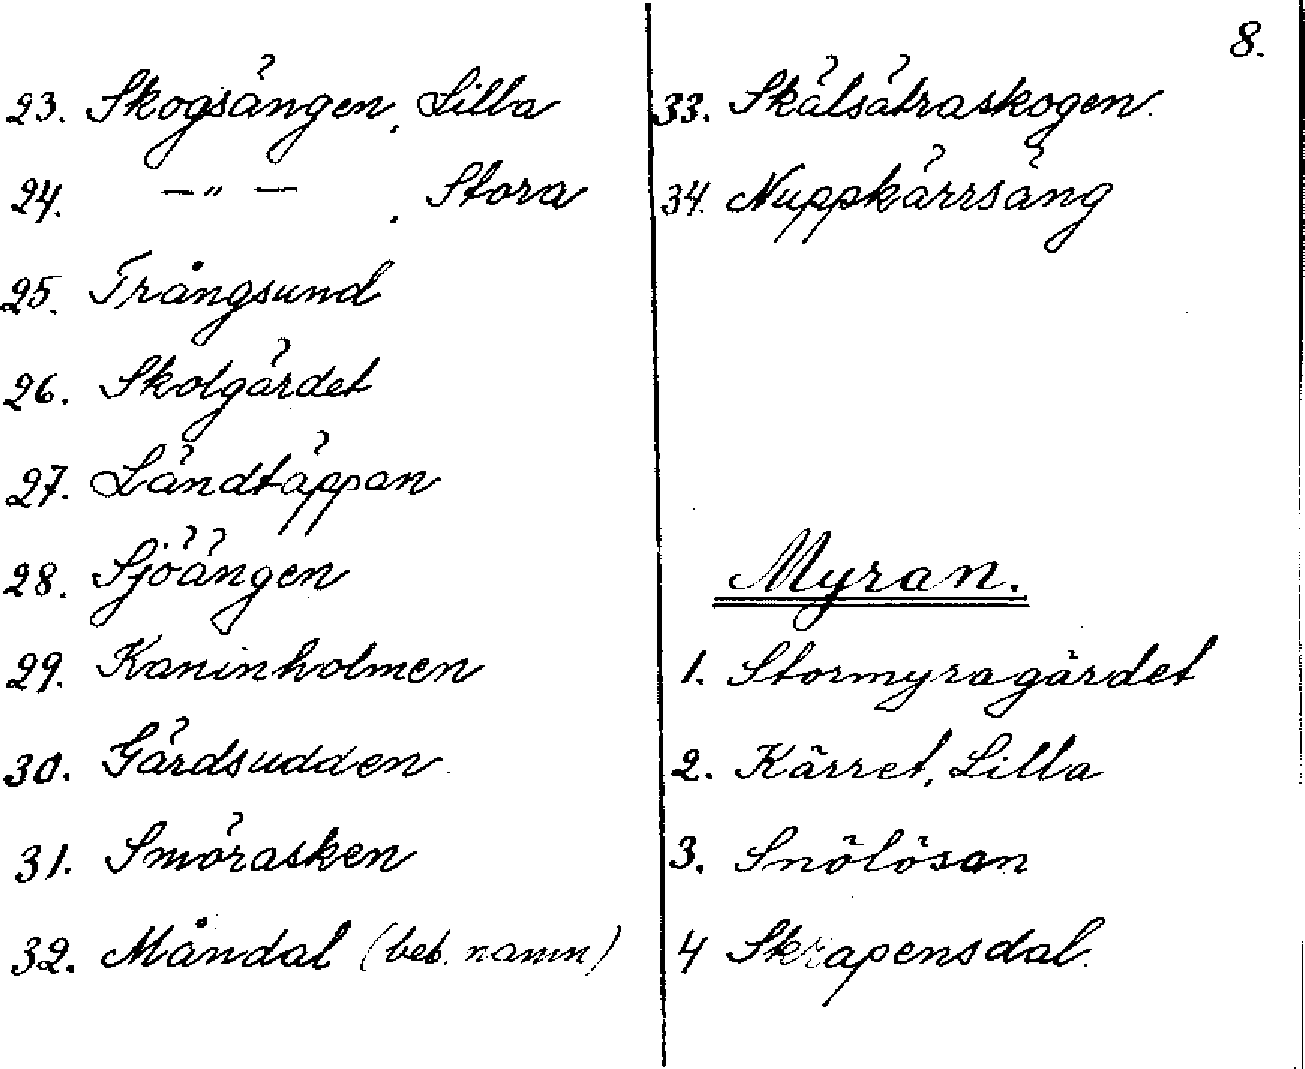 8.
23. Skogsängen, Lilla
24. —"— , Stora
25. Trångsund
26. Skolgärdet
27. Ländtäppan
28. Sjöängen
29. Kaninholmen
30. Gärdsudden
31. Smörasken
32. Måndal (beb. namn)
33. Skälsätraskogen.
34. Nuppkärrsäng
Myran.
1. Stormyragärdet
2. Kärret, Lilla
3. Snölösan
4 Skrapensdal.